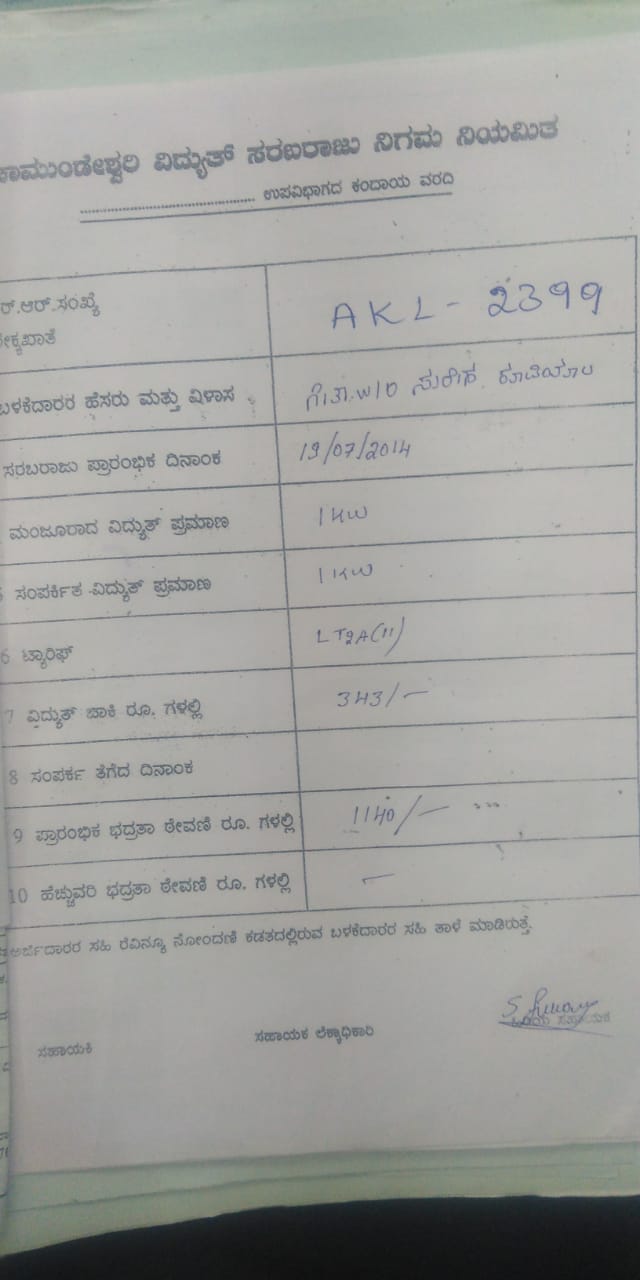 ಚಾಮುಂಡೇಶ್ವರಿ ವಿದ್ಯುತ್ ಸರಬರಾಜು ನಿಗಮ ನಿಯಮಿತ
.......................................... ಉಪವಿಭಾಗದ ಕಂದಾಯ ವರದಿ
ರ್.ಆರ್.ಸಂಖ್ಯೆ AKL - 2399
ಲೆಕ್ಕಖಾತೆ
ಬಳಕೆದಾರರ ಹೆಸರು ಮತ್ತು ವಿಳಾಸ ಗೀತಾ W/O ಸುರೇಶ.
ಸರಬರಾಜು ಪ್ರಾರಂಭಿಕ ದಿನಾಂಕ 19/07/2014
ಮಂಜೂರಾದ ವಿದ್ಯುತ್ ಪ್ರಮಾಣ 1 KW
ಸಂಪರ್ಕಿತ ವಿದ್ಯುತ್ ಪ್ರಮಾಣ 1 KW
6 ಟ್ಯಾರಿಫ್ LT2A(11)
7 ವಿದ್ಯುತ್ ಬಾಕಿ ರೂ. ಗಳಲ್ಲಿ 343/-
8 ಸಂಪರ್ಕ ತೆಗೆದ ದಿನಾಂಕ
9 ಪ್ರಾರಂಭಿಕ ಭದ್ರತಾ ಠೇವಣಿ ರೂ. ಗಳಲ್ಲಿ 1140/-
10 ಹೆಚ್ಚುವರಿ ಭದ್ರತಾ ಠೇವಣಿ ರೂ. ಗಳಲ್ಲಿ -
ಅರ್ಜಿದಾರರ ಸಹಿ ರೆವಿನ್ಯೂ ನೋಂದಣಿ ಕಡತದಲ್ಲಿರುವ ಬಳಕೆದಾರರ ಸಹಿ ತಾಳೆ ಮಾಡಿರುತ್ತೆ.
ಸಹಾಯಕಿ ಸಹಾಯಕ ಲೆಕ್ಕಾಧಿಕಾರಿ ಹಿರಿಯ ಸಹಾಯಕ